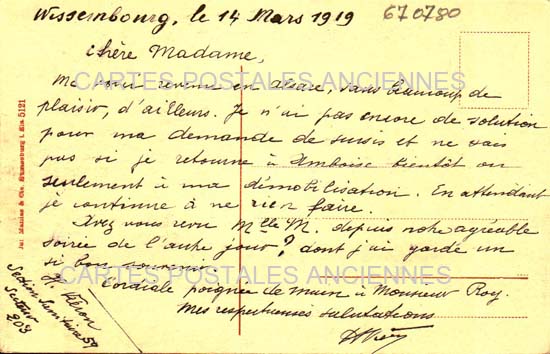 Wissembourg, le 14 Mars 1919
670780
Chère Madame,
Me voici revenu en alsace, sans beaucoup de
plaisir, d'ailleurs. Je n'ai pas encore de solution
pour ma demande de sursis et ne sais
pas si je retourne à Amboise bientôt ou
seulement à ma démobilisation. En attendant
je continue à ne rien faire.
Avez vous revu Mlle M. depuis notre agréable
soirée de l'autre jour? dont j'ai gardé un
si bon souvenir.
Cordiale poignée de main à Monsieur Roy.
Mes respectueuses salutations
Section Sanitaire 59
Secteur
203
CARTES POSTALES ANCIENNES
CARTES POSTALES ANCIENNES
5121